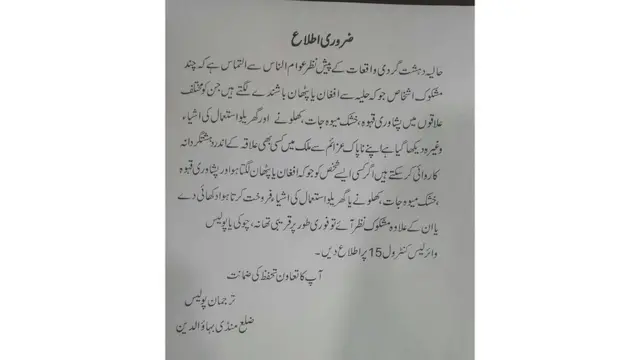 ضروری اطلاع
حالیہ دہشت گردی واقعات کے پیش نظر عوام الناس سے التماس ہے کہ چند
مشکوک اشخاص جو کہ حلیہ سے افغان یا پٹھان باشندے لگتے ہیں جن کو مختلف
علاقوں میں پشاوری قہوہ، خشک میوہ جات، کھلونے اور گھریلو استعمال کی اشیاء
وغیرہ دیکھا گیا ہے اپنے ناپاک عزائم سے ملک میں کسی بھی علاقہ کے اندر دہشتگردانہ
کاروائی کر سکتے ہیں اگر کسی ایسے شخص کو جو کہ افغان یا پٹھان لگتا ہو اور پشاوری قہوہ
،خشک میوہ جات، کھلونے یا گھریلو استعمال کی اشیاء فروخت کرتا ہوا دکھائی دے
یا ان کے علاوہ مشکوک نظر آئے تو فوری طور پر قریبی تھانہ، چوکی یا پولیس
وائرلیس کنٹرول 15 پر اطلاع دیں۔
آپ کا تعاون تحفظ کی ضمانت
ترجمان پولیس
ضلع منڈی بہاؤالدین